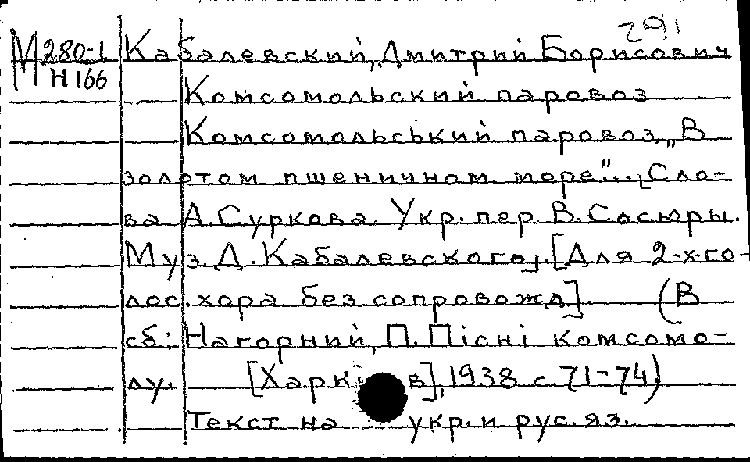 291
М 280-1 Кабалевский, Дмитрий Борисович
Н166
Комсомольский паровоз
Комсомольський паровоз. „В
золотом пшеничном море"... [Сло-
ва А. Суркова. Укр. пер. В. Сосюры.
Муз. Д. Кабалевского]. [Для 2-х го-
лос. хора без сопровожд] (В
сб: Нагорний, П. Пісні комсомо-
лу. [Харків], 1938 с 71-74)
Текст на укр. и рус. яз.